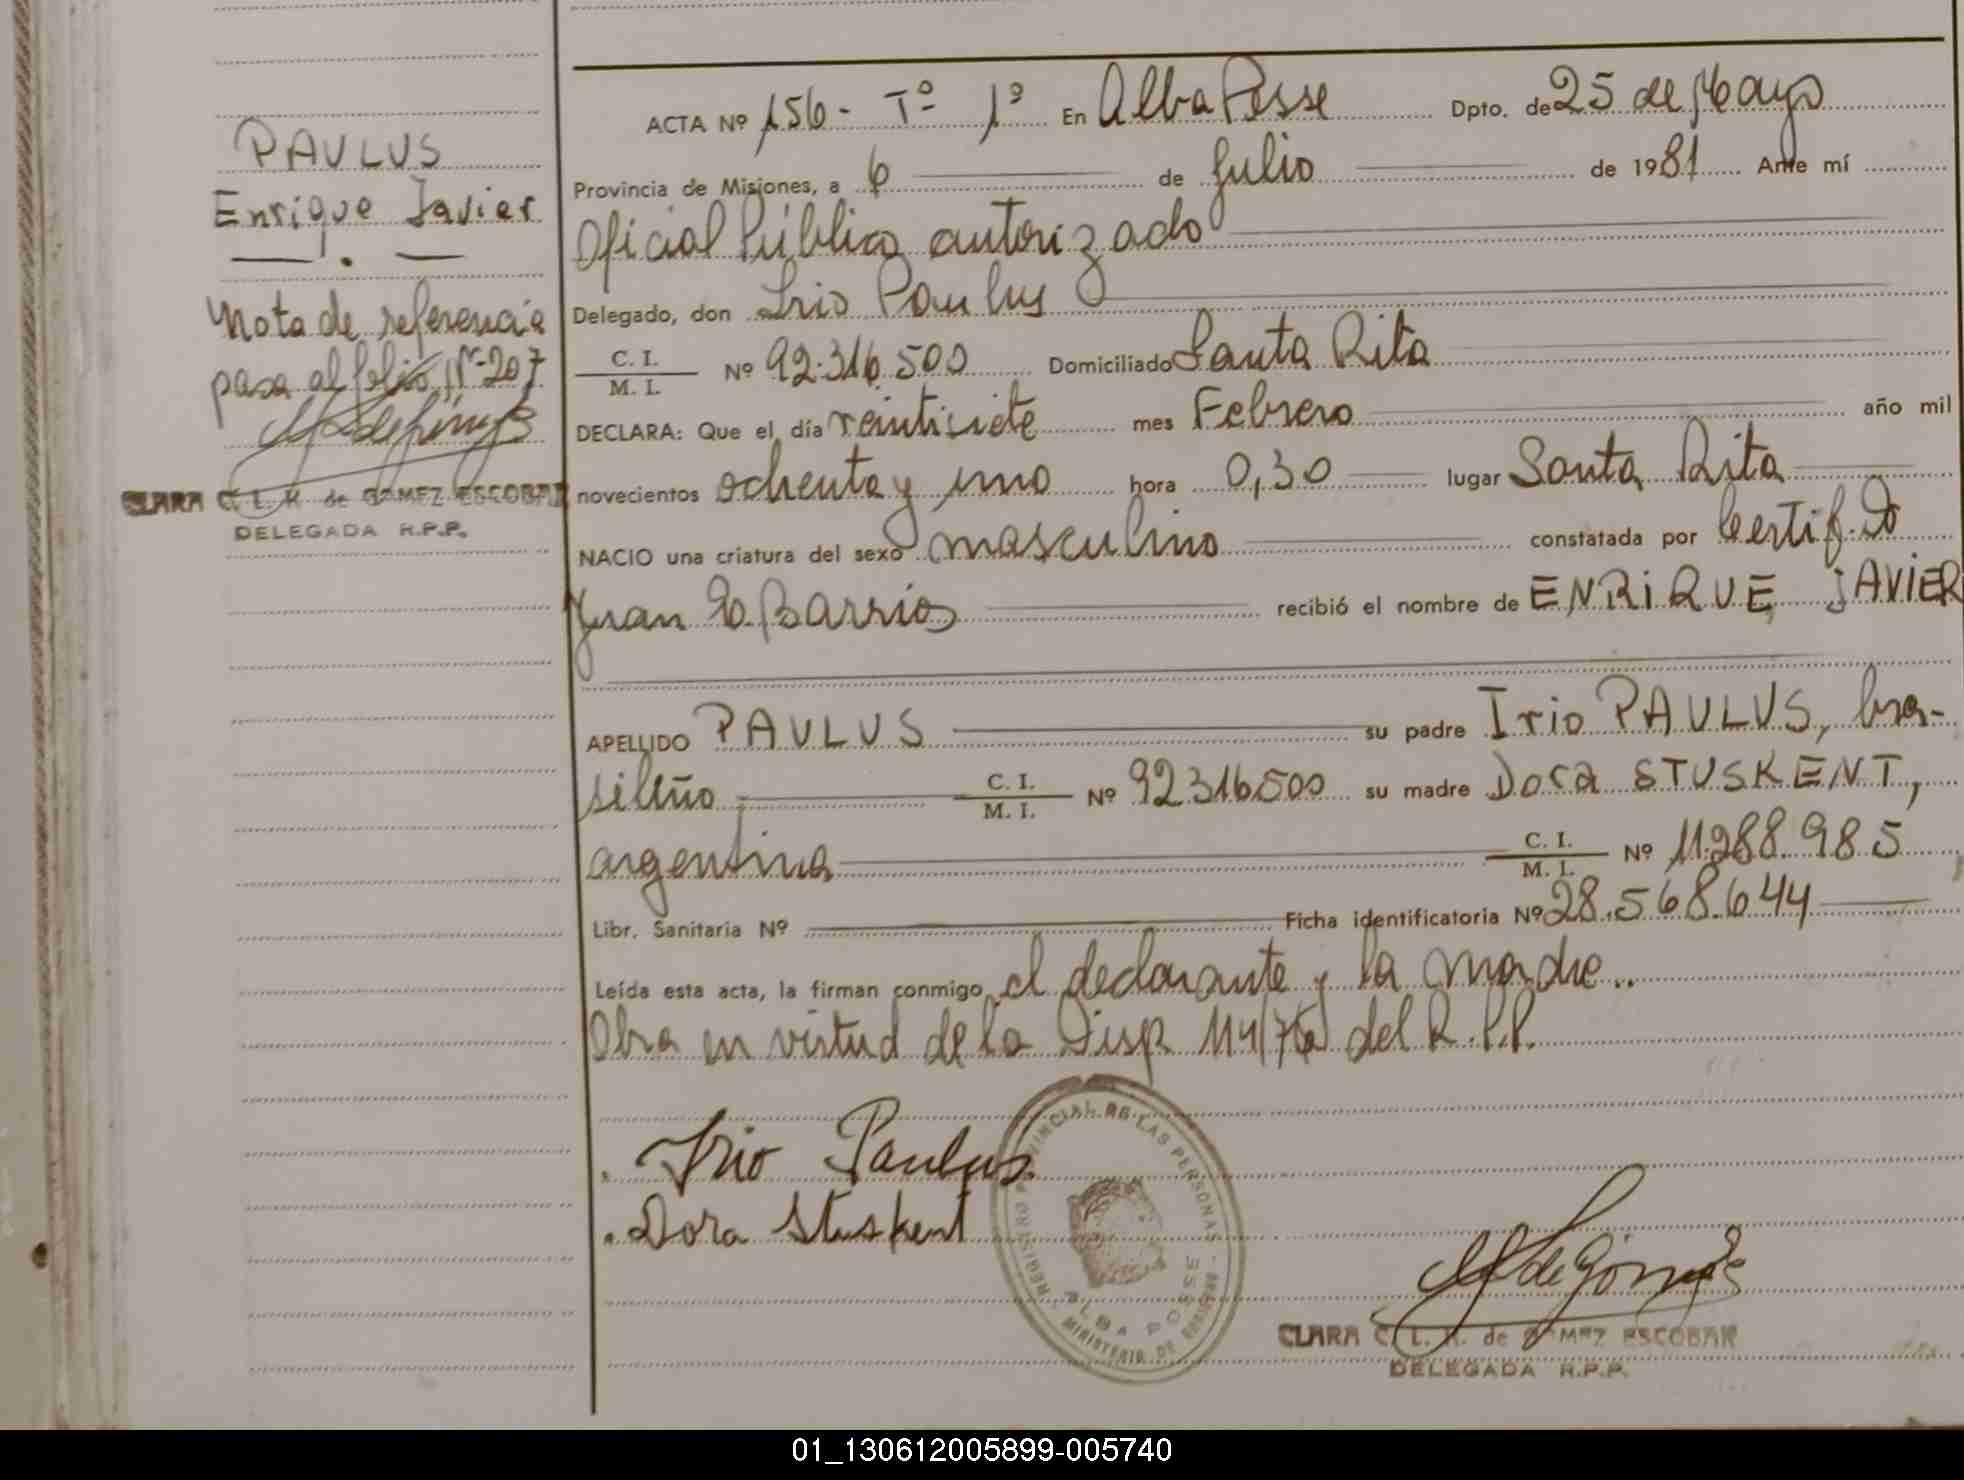 PAULUS
Enrique Javier
Nota de referencia
pasa al folio Nº 207
CLARA C. L. K. de GOMEZ ESCOBAR
DELEGADA R.P.P.
ACTA Nº 156 - Tº 1º En Alba Posse Dpto. de 25 de Mayo
Provincia de Misiones, a 6 de Julio de 1981 Ante mí
Oficial Público autorizado
Delegado, don Irio Paulus
C. I.
M. I. Nº 92.316.500 Domiciliado Santa Rita
DECLARA: Que el día veintisiete mes Febrero año mil
novecientos ochenta y uno hora 0,30 lugar Santa Rita
NACIO una criatura del sexo masculino constatada por Certif. D
Juan E. Barrios recibió el nombre de ENRIQUE JAVIER
APELLIDO PAULUS su padre Irio PAULUS, bra-
sileño C. I. M. I. Nº 92316500 su madre Dora STUSKENT,
argentina C. I. M. I. Nº 11.288.985
Libr. Sanitaria Nº Ficha identificatoria Nº 28.568.644
Leída esta acta, la firman conmigo el declarante y la madre..
Obra en virtud de la Disp. 114/76 del R.P.P.
Irio Paulus
Dora Stuskent
REGISTRO PROVINCIAL DE LAS PERSONAS
ALBA POSSE
MINISTERIO DE
CLARA C. L. K. de GOMEZ ESCOBAR
DELEGADA R.P.P.
01_130612005899-005740